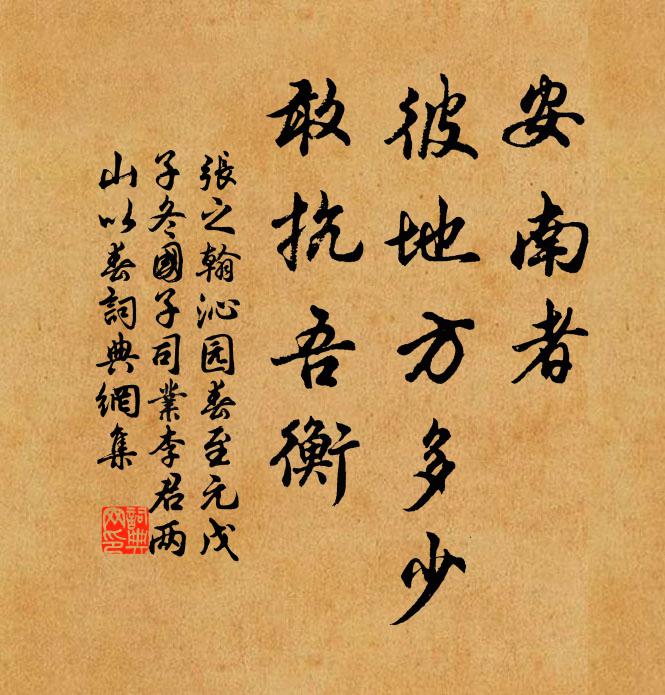 安南者
彼地方多少
敢抗吾衡
張之翰沁园春至元戊
子冬國子司業李君两
山以春詞典網集
詞典網印